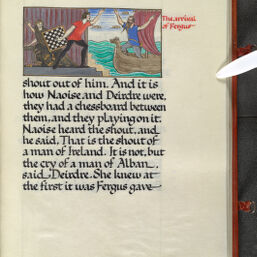 The arrival
of Fergus
shout out of him. And it is
how Naoise and Deirdre were,
they had a chessboard between
them, and they playing on it.
Naoise heard the shout, and
he said, That is the shout of
a man of Ireland. It is not, but
the cry of a man of Alban,
said Deirdre. She knew at
the first it was Fergus gave